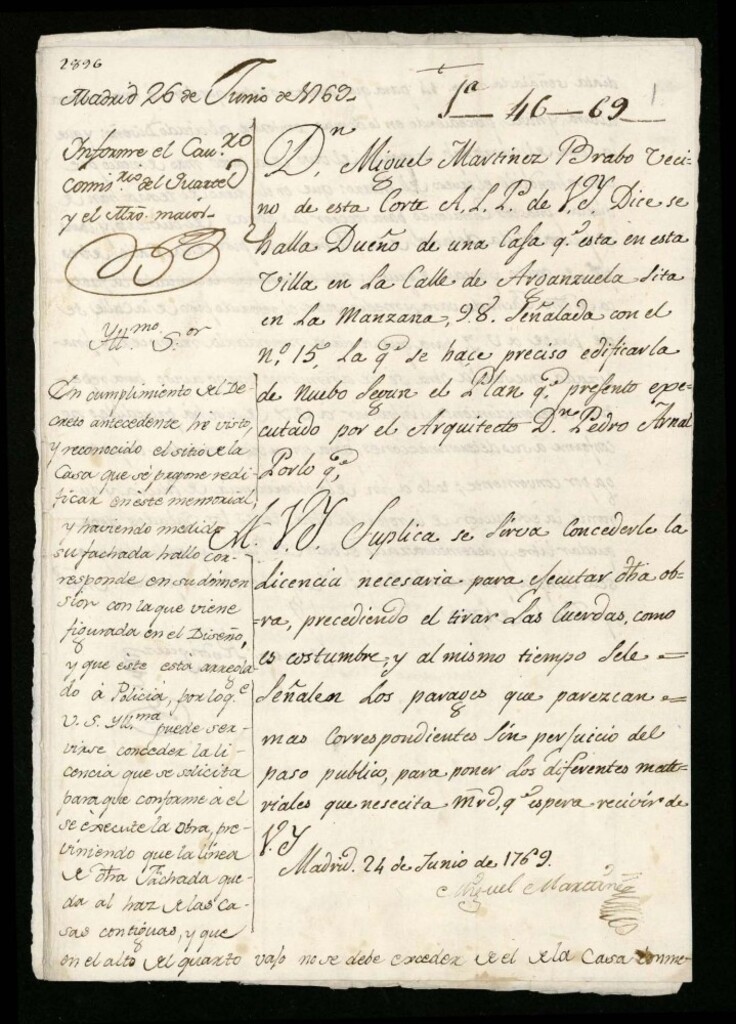 2896
Madrid 26 de Junio de 1769.
Informe el Cav.ro
comis.rio del Quartel
y el Mro. maior
Yll.mo S.or
En cumplimiento del De-
creto antecedente he visto,
y reconocido el sitio de la
Casa que se propone redi-
ficar en este memorial,
y haviendo medido
su fachada hallo cor-
responde en su dimen-
sion con la que viene
figurada en el Diseño,
y que éste está arregla-
do à Policia, por lo q.e
V. S. Yll.ma puede ser-
virse conceder la li-
cencia que se solicita
para que conforme à el
se execute la obra, pre-
viniendo que la linea
de dtha Fachada que-
da al haz de las ca-
sas contiguas, y que
en el alto del quarto vajo no se debe exceder de el de la Casa
1a 46-69
1
D.n Miguel Martinez Brabo Veci-
no de esta Corte A. L. P. de V. Y. Dice se
halla Dueño de una Casa q.e esta en esta
Villa en La Calle de Arganzuela sita
en La Manzana, 98. Señalada con el
n.o 15, La q.e se hace preciso edificarla
de nuebo segun el Plan q.e presento exe-
cutado por el Arquitecto D.n Pedro Arnal
Porlo q.e
A. V. Y. Suplica se sirva concederle la
Licencia necesaria para ejecutar dtha ob-
ra, precediendo el tirar Las Cuerdas, como
es costumbre, y al mismo tiempo sele =
Señalen Los parages que parezcan =
mas Correspondientes sin perjuicio del
paso publico, para poner Los diferentes mate-
riales que nesecita mrd, q.e espera recivir de
V. Y
Madrid. 24 de Junio de 1769.
Miguel Martinez